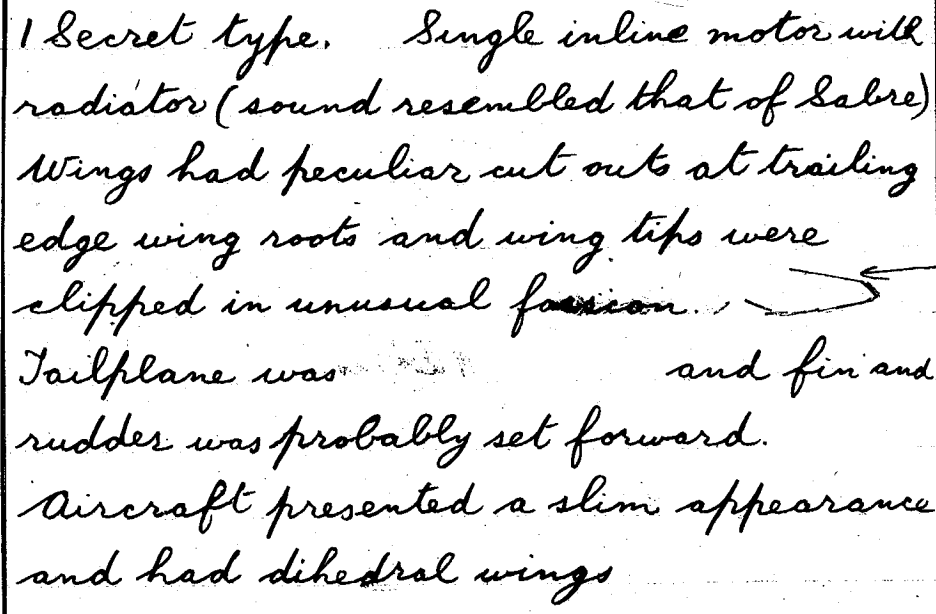 1 Secret type. Single inline motor with
radiator (sound resembled that of Sabre)
Wings had peculiar cut outs at trailing
edge wing roots and wing tips were
clipped in unusual fassion.
Tailplane was and fin and
rudder was probably set forward.
Aircraft presented a slim appearance
and had dihedral wings